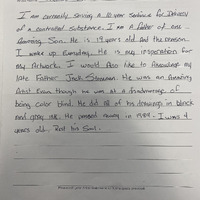 I am currently serving a 10 year sentence for Delivery
of a controlled substance. I am a father of one
Amazing Son. He is 19 years old and the reason
I wake up Everyday. He is my inspiration for
my Artwork. I would Also like to Acknowledge my
late Father Jack Strawman. He was an Amazing
Artist Even though he was at a disadvantage of
being color blind. He did all of his drawings in black
and gray ink. He passed away in 1984 - I was 4
years old. Rest his Soul.